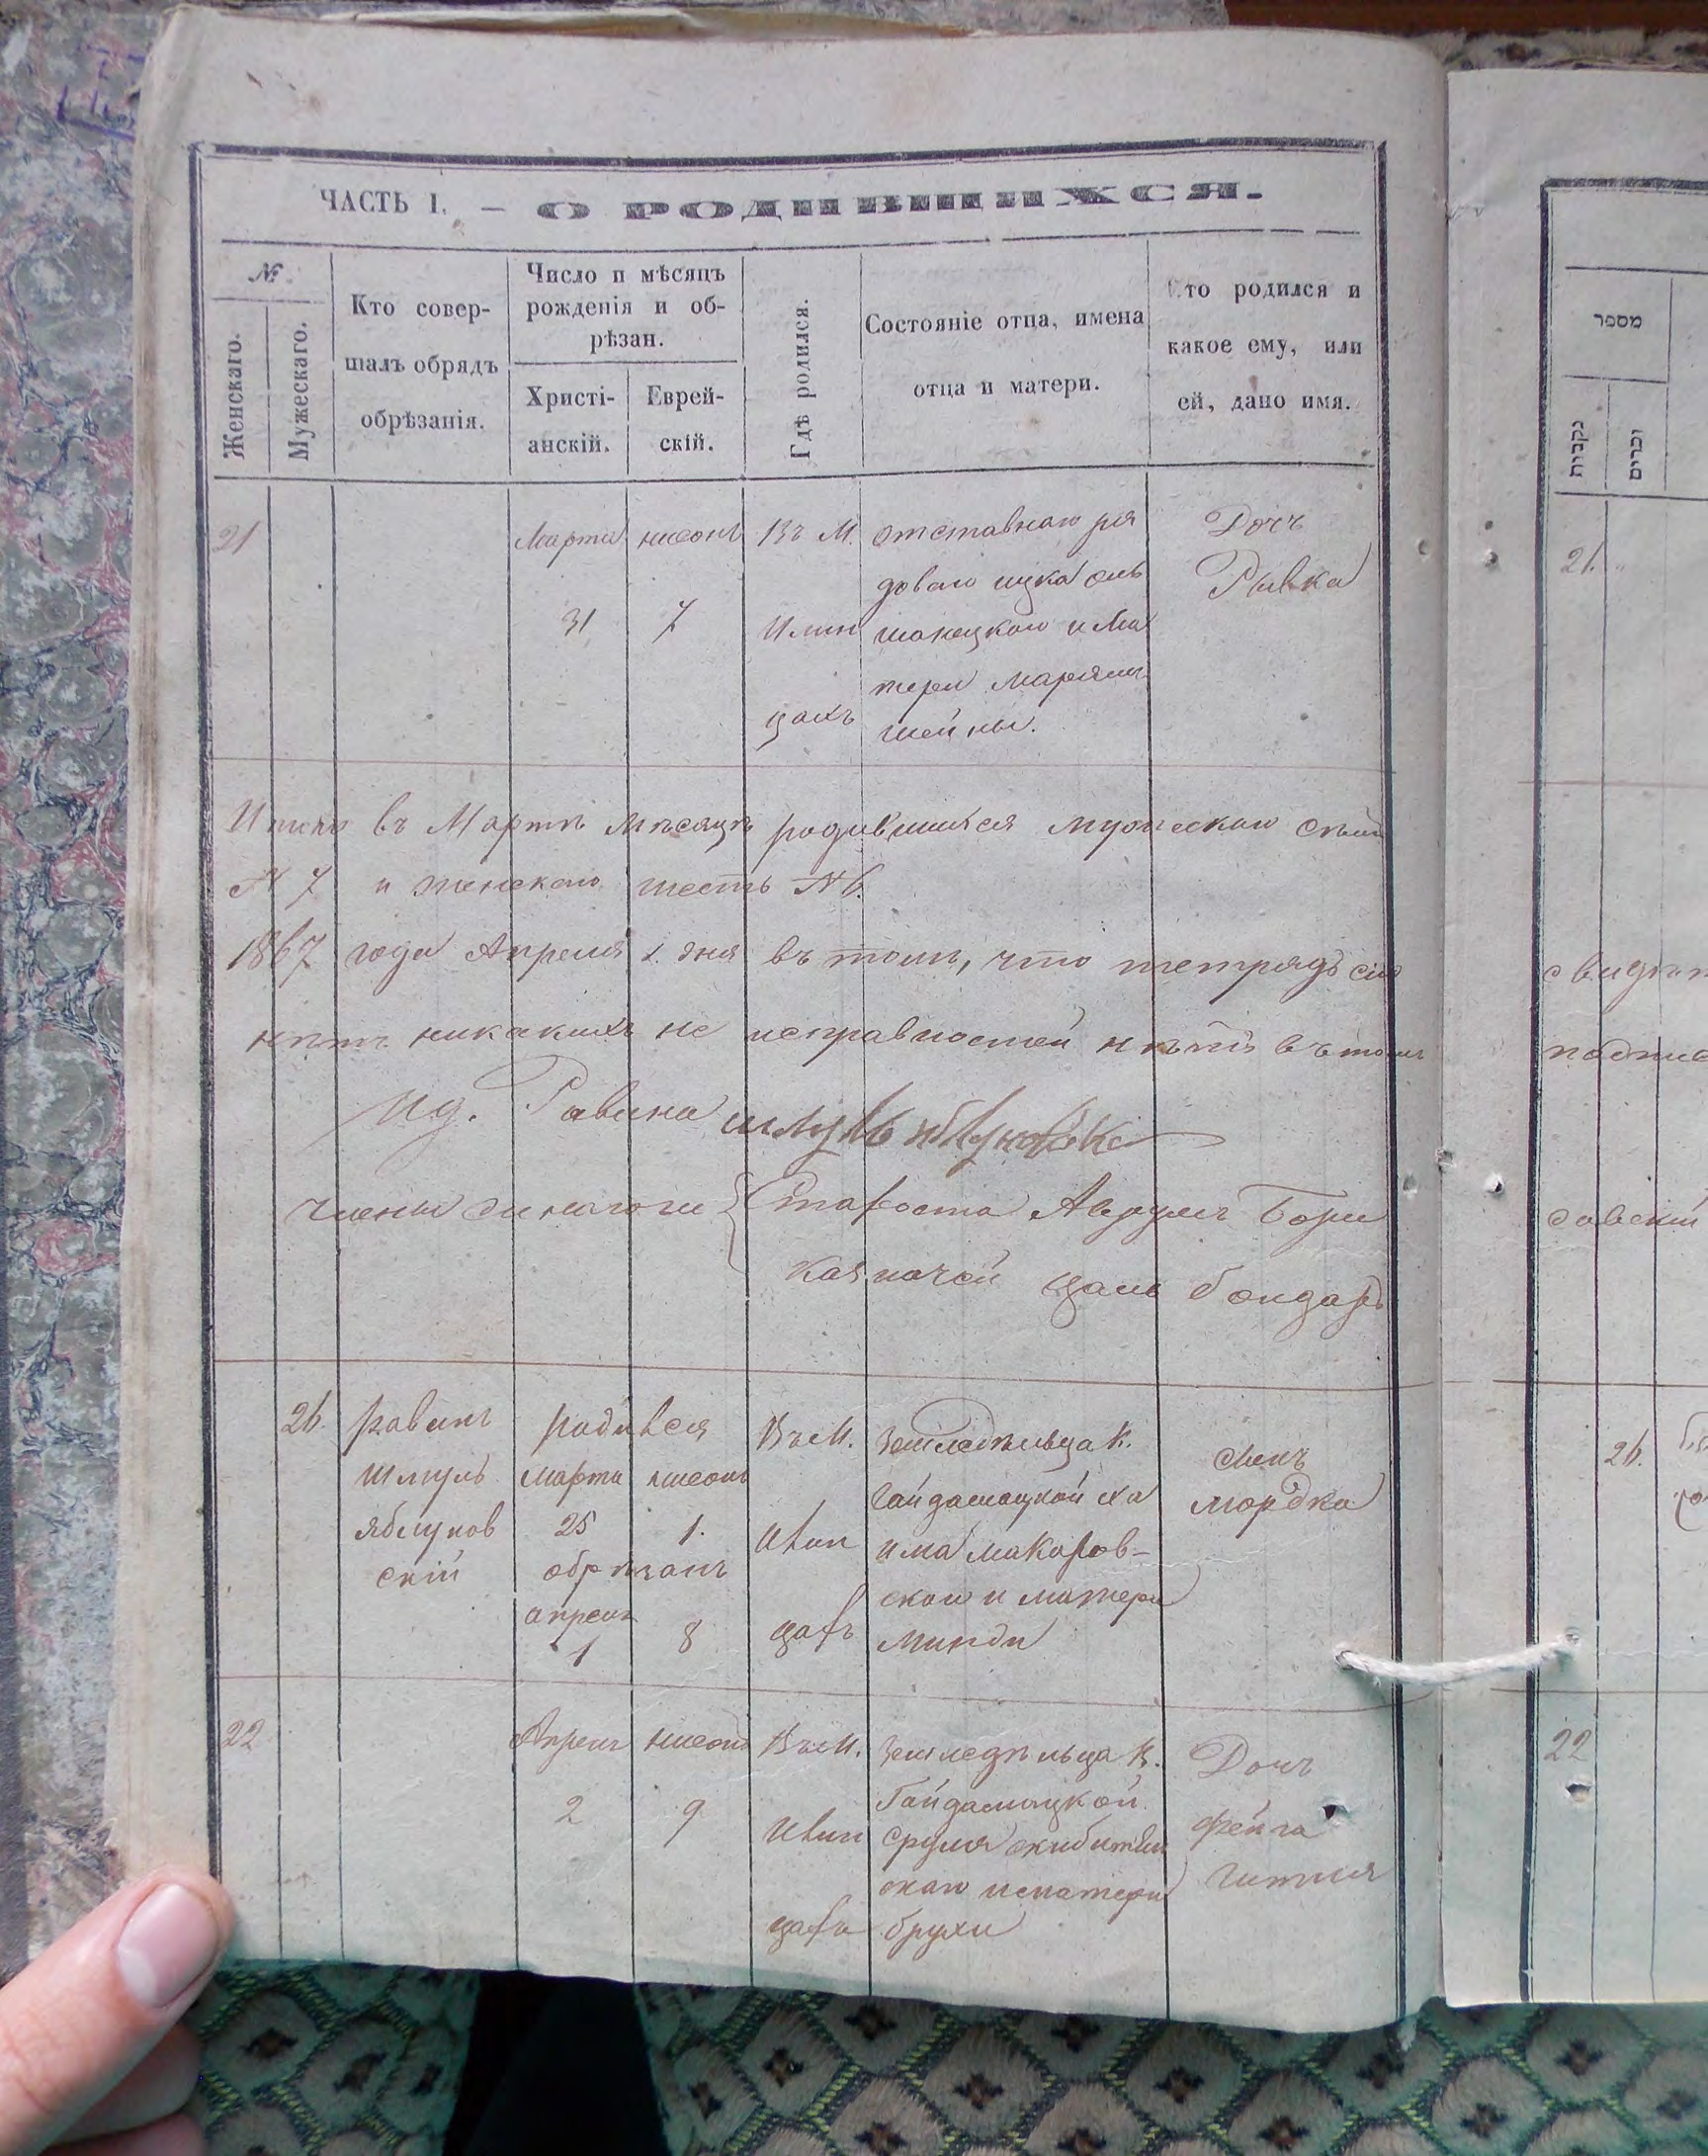 ЧАСТЬ I. — О РОДИВШИХСЯ.
№
Женскаго.
Мужескаго.
Кто совер-
шалъ обрядъ
обрѣзанія.
Число и мѣсяцъ
рожденія и об-
рѣзан.
Христі-
анскій.
Еврей-
скій.
Гдѣ родился.
Состояніе отца, имена
отца и матери.
Кто родился и
какое ему, или
ей, дано имя.
21
Марта
31
нисонъ
7
Въ М.
Илин
цахъ
отставнаго ря
доваго ицка оль
шанецкаго и Ма
тери Маріями
шейны.
Дочъ
Рывка
Итого въ Мартѣ Мѣсяцѣ родившихся мужескаго семъ
№ 7 и женскаго шесть № 6.
1867 года Апреля 1. дня въ томъ, что тетрадъ сію
нетъ никакихъ не исправностей нѣтъ въ томъ
Ид. Равина
члены синагоги
Староста Аврумъ Бори
казначей цаль бондаръ
26.
равинъ
Шмуль
яблунов
скій
родився
марта
25
нисонъ
1.
обрѣзанъ
апреля
1
8
Въ М.
Илин
цахъ
земледельца К.
Гайдамацкой ха
има макаров-
скаго и матери
Минди
Сынъ
мордка
22
Апрель
2
нисонъ
9
Въ М.
Илин
цахъ
земледельца К.
Гайдамацкой
сруля скибитин
скаго и матери
брухи
Дочъ
фейга
гитля
מספר
נקבות
זכרים
21.
подпис
савскій
26.
22